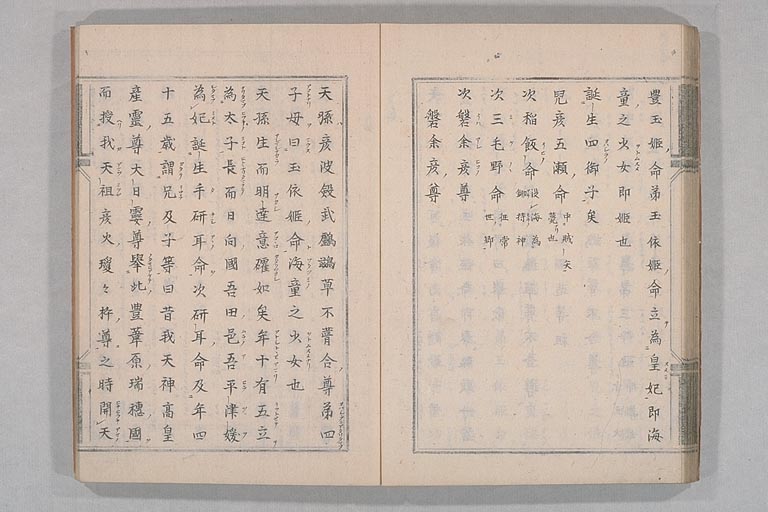 豊玉姫命弟玉依姫命立為皇妃即海
童之少女即姫也
誕生四御子矣
兄彦五瀬命中賊矢薨也
次稲飯命後海為鋤持神
次三毛野命往常世郷
次磐余彦尊
磐余彦尊
天孫彦波㶑武鸕鷀草不葺合尊弟四
子母曰玉依姫命海童之少女也
天孫生而明達意礭如矣年十有五立
為太子長而日向國吾田邑吾平津媛
為妃誕生手研耳命次研耳命及年四
十五歳謂兄及子等曰昔我天神高皇
産靈尊大日孁尊舉此豊葦原瑞穂國
而授我天祖彦火瓊々杵尊之時開天